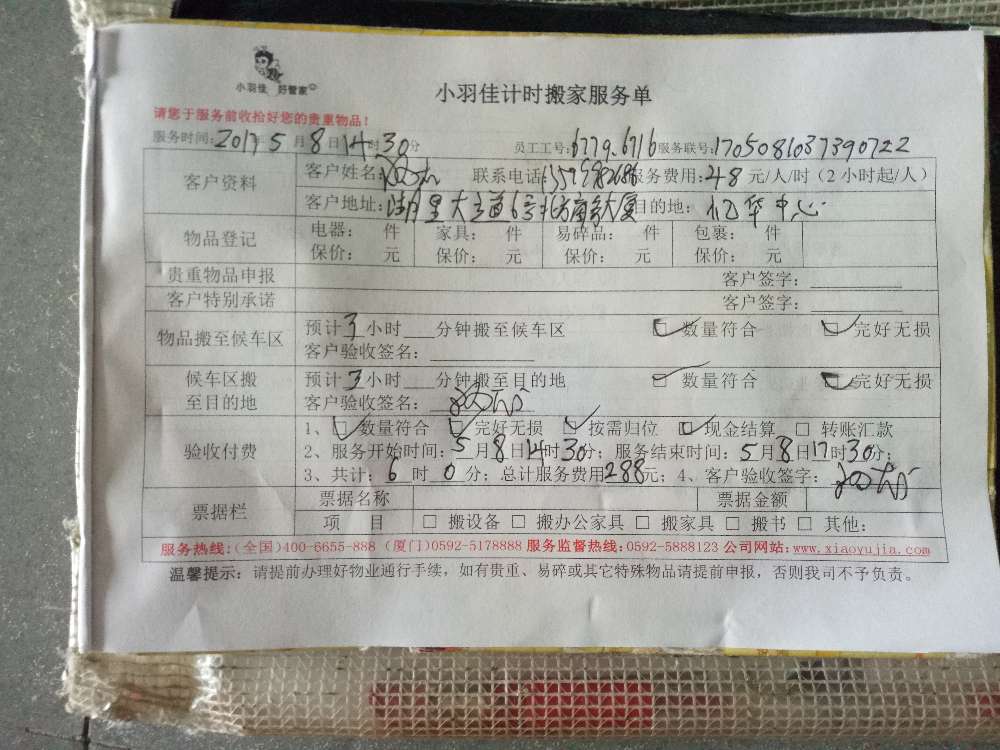 小羽佳 好管家
小羽佳计时搬家服务单
请您于服务前收拾好您的贵重物品！
服务时间：2017年5月8日14时30分 员工工号：6779.6716 服务联号：17050810373907​22
客户资料 客户姓名： 联系电话： 服务费用：48元/人/时（2小时起/人）
客户地址：湖里大道6号北方商务大厦 目的地：亿华中心
物品登记 电器： 件 家具： 件 易碎品： 件 包裹： 件
保价： 元 保价： 元 保价： 元 保价： 元
贵重物品申报 客户签字：
客户特别承诺 客户签字：
物品搬至候车区 预计3小时 分钟搬至候车区 数量符合 完好无损
客户验收签名：
候车区搬至目的地 预计3小时 分钟搬至目的地 数量符合 完好无损
客户验收签名：
验收付费 1、 数量符合 完好无损 按需归位 现金结算 □ 转账汇款
2、服务开始时间：5月8日14时30分；服务结束时间：5月8日17时30分；
3、共计：6时0分；总计服务费用288元；4、客户验收签字：
票据栏 票据名称 票据金额
项 目 □ 搬设备 □ 搬办公家具 □ 搬家具 □ 搬书 □ 其他：
服务热线：（全国）400-6655-888（厦门）0592-5178888 服务监督热线：0592-5888123 公司网站：www.xiaoyujia.com
温馨提示：请提前办理好物业通行手续，如有贵重、易碎或其它特殊物品请提前申报，否则我司不予负责。